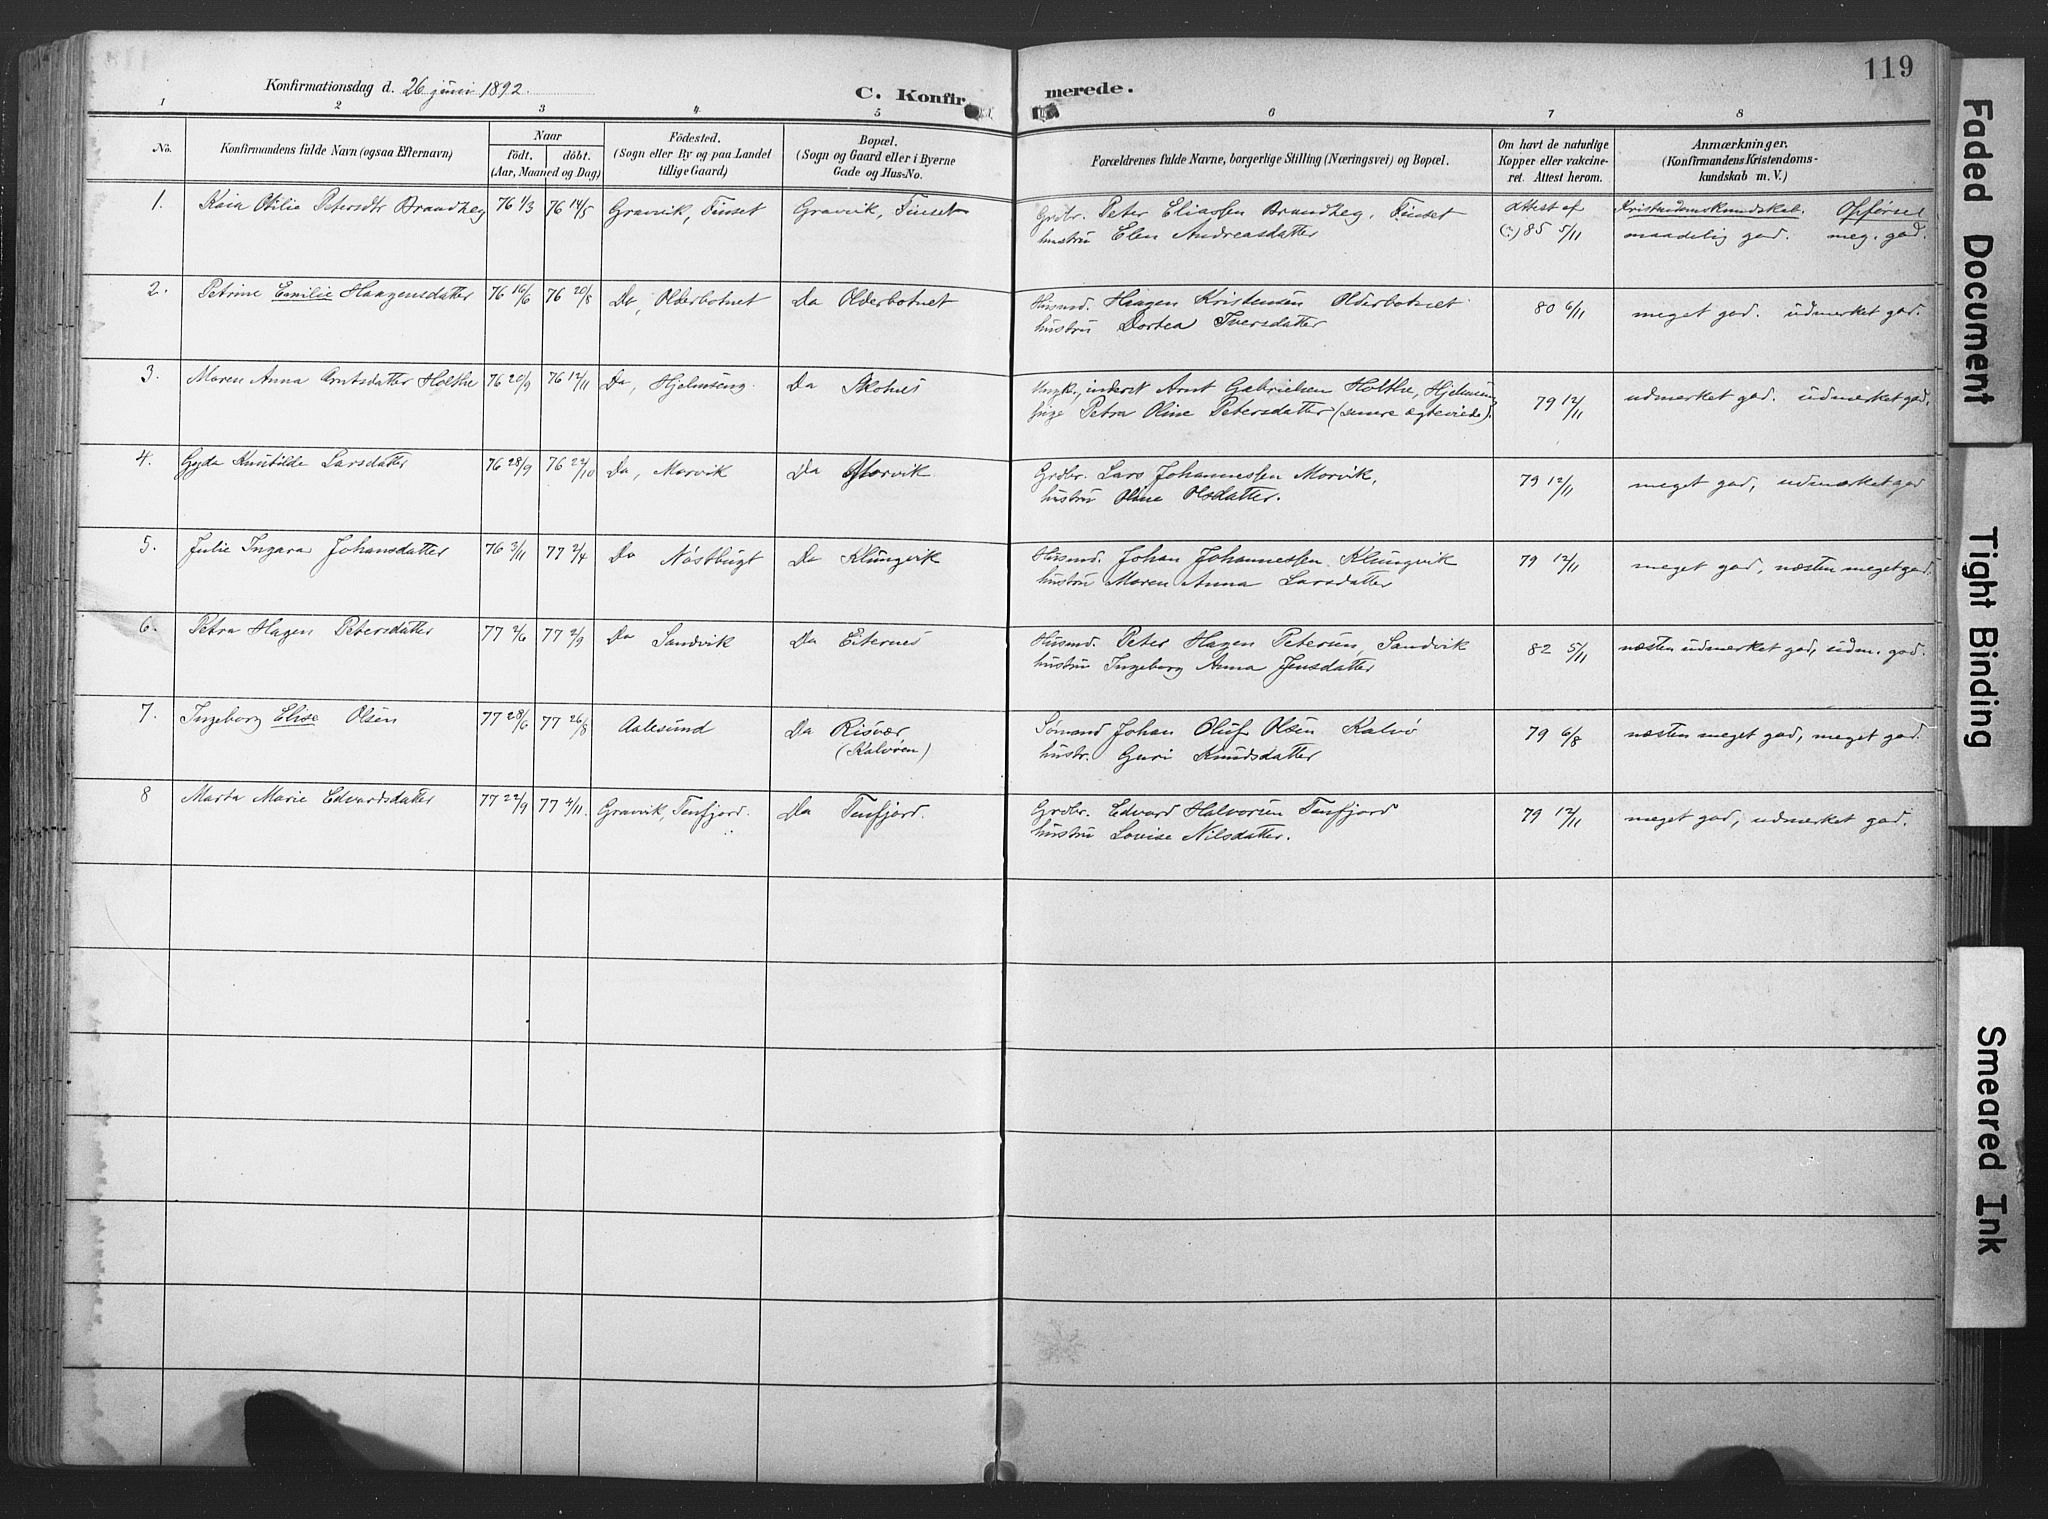 119
Konfirmationsdag d. 26 juni 1892.
C. Konfirmerede.
1 2 3 4 5 6 7 8
No.
Konfirmandens fulde Navn (ogsaa Efternavn)
Naar
födt. döbt.
(Aar, Maaned og Dag)
Födested.
(Sogn eller By og paa Landet
tillige Gaard)
Bopæl.
(Sogn og Gaard eller i Byerne
Gade og Hus-No.
Forældrenes fulde Navne, borgerlige Stilling (Næringsvei) og Bopæl.
Om havt de naturlige
Kopper eller vakcine-
ret. Attest herom.
Anmærkninger.
(Konfirmandens Kristendoms-
kundskab m. V.)
1. Kaia Otilia Petersdtr Brandheg 76 1/3 76 14/5 Gravvik, Finset Gravvik, Finset Grdbr. Peter Eliassen Brandheg, Finset Attest af Kristendomskundskab. Opførsel
hustru Elen Andreasdatter (:) 85 5/11 maadelig god. meg. god.
2. Petrine Emilie Haagensdatter 76 16/6 76 20/8 Do, Olderbotnet Do Olderbotnet Husmd. Haagen Kristensen Olderbotnet 80 6/11 meget god. udmerket god.
hustru Dortea Iversdatter
3. Maren Anna Arntsdatter Holthe 76 20/9 76 12/11 Do, Hjelmseng. Do Skotnes Ungk., inderst Arnt Gabrielsen Holthe, Hjelmseng 79 12/11 udmærket god. udmærket god.
pige Petra Oline Petersdatter (senere ægteviede).
4. Gyda Knubilde Larsdatter 76 28/9 76 22/10 Do, Morvik Do Morvik Grdbr. Lars Johannessen Morvik, 79 12/11 meget god, udmærket god
hustru Oline Olsdatter.
5. Julie Ingara Johansdatter 76 3/11 77 2/4 Do Nøstbugt Do Klungvik Husmd. Johan Johannessen Klungvik 79 12/11 meget god, næsten meget god.
hustru Maren Anna Larsdatter
6. Petra Hagen Petersdatter 77 2/6 77 2/9 Do Sandvik Do Eiternes Husmd. Peter Hagen Petersen, Sandvik 82 5/11 næsten udmærket god, udm. god.
hustru Ingeborg Anna Jensdatter
7. Ingeborg Elise Olsen 77 28/6 77 26/8 Aalesund Do Risvær Sømand Johan Oluf Olsen Kalvø 79 6/8 næsten meget god, meget god.
(Kalvøen) hustr. Guri Knudsdatter
8 Marta Marie Edvardsdatter 77 22/9 77 4/11. Gravvik, Terfjord. Do Terfjord. Grdbr. Edvard Halvorsen Terfjord 79 12/11 meget god, udmærket god.
hustru Lovise Nilsdatter.
Faded Document
Tight Binding
Smeared Ink